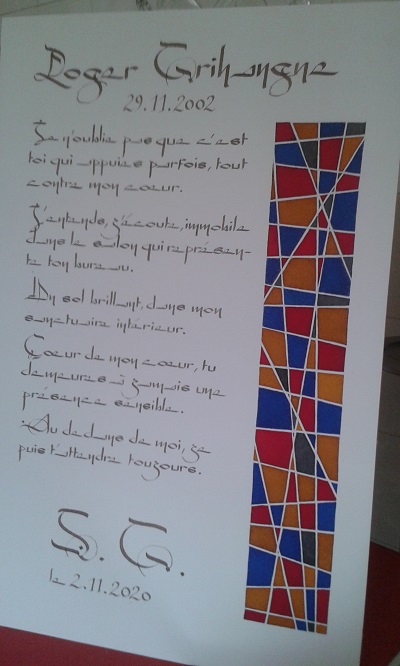 Roger Grihangne
29.11.2002
Je n'oublie pas que c'est
toi qui appuies parfois, tout
contre mon cœur.
J'entends, j'écoute, immobile
dans le salon qui représen-
te ton bureau.
Un sol brillant, dans mon
sanctuaire intérieur.
Cœur de mon cœur, tu
demeures à jamais une
présence sensible.
Au dedans de moi, je
puis t'attendre toujours.
S. G.
le 2.11.2020